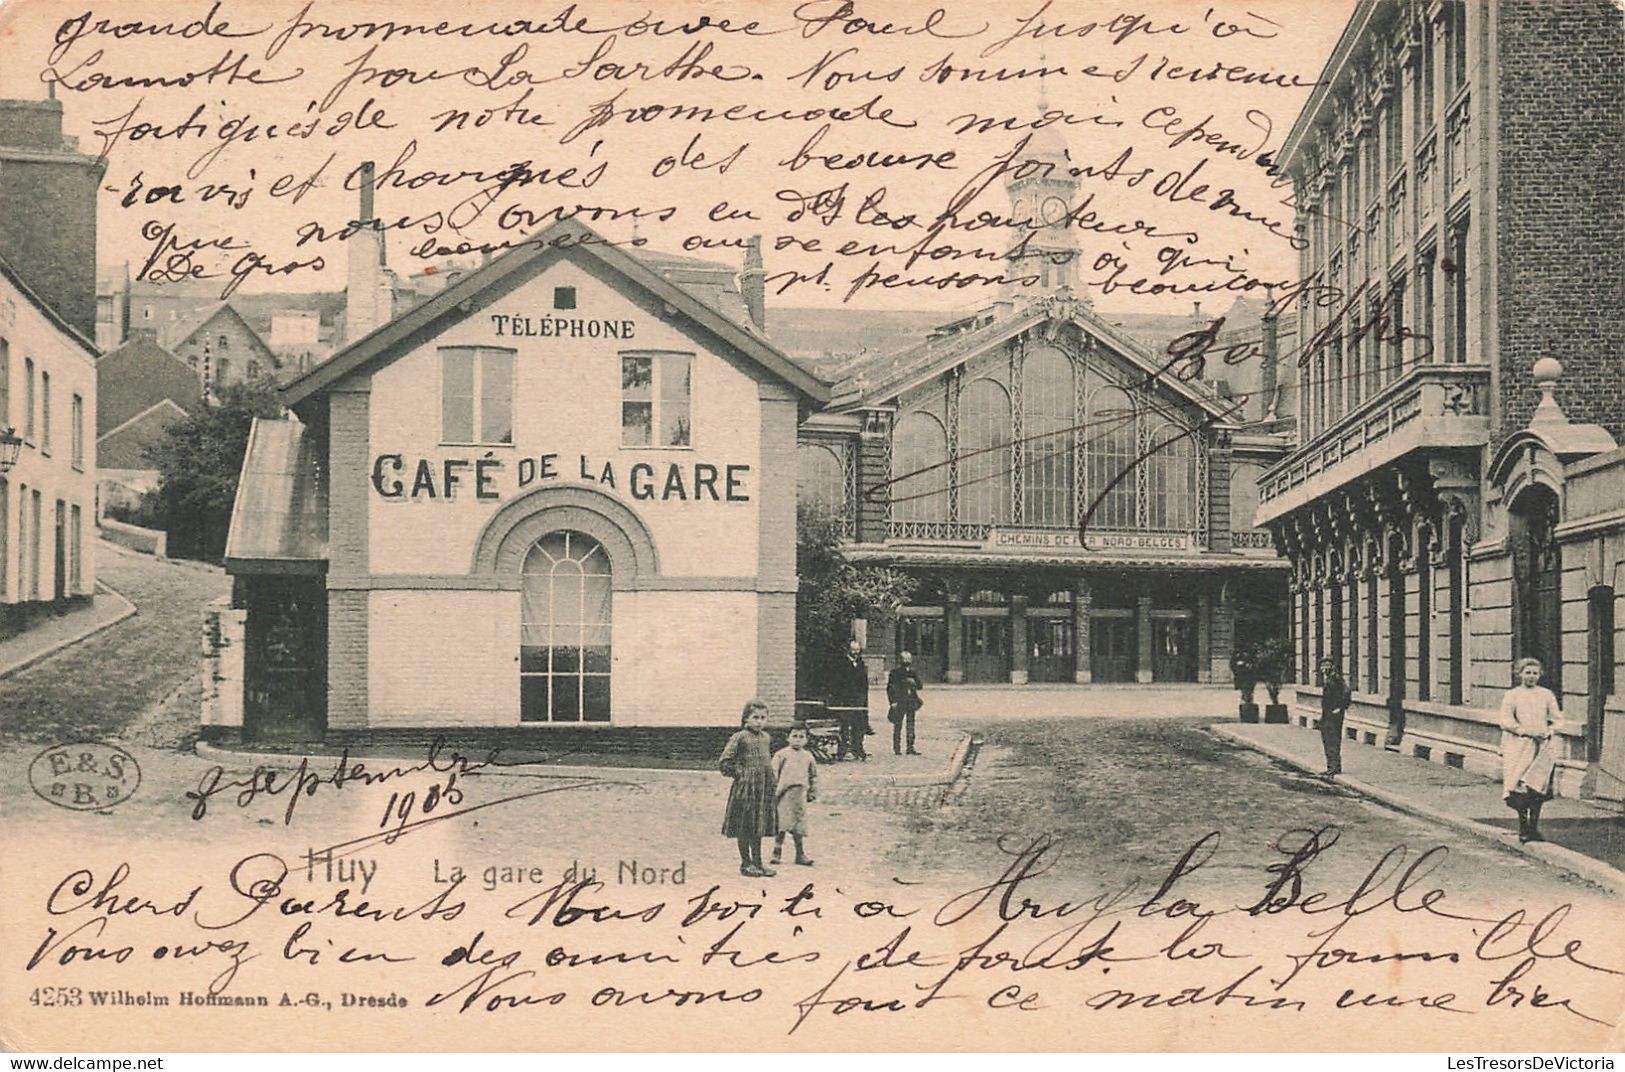 grande promenade avec Paul jusqu'à
Lamotte par La Sarthe. Nous sommes revenu
fatigués de notre promenade mais cependant
ravis et charmés des beaux points de vues
que nous avons eu des hauteurs
De gros baisers au enfants à qui
nt pensons beaucoup
TÉLÉPHONE
CAFÉ DE LA GARE
CHEMINS DE FER NORD-BELGES
E & S.
B.
8 septembre
1905
Huy La gare du Nord
Chers Parents Nous voici à Huy la Belle
Vous avez bien des amitiés de toute la famille
4253 Wilhelm Hoffmann A.-G., Dresde
Nous avons fait ce matin une bien
LesTresorsDeVictoria